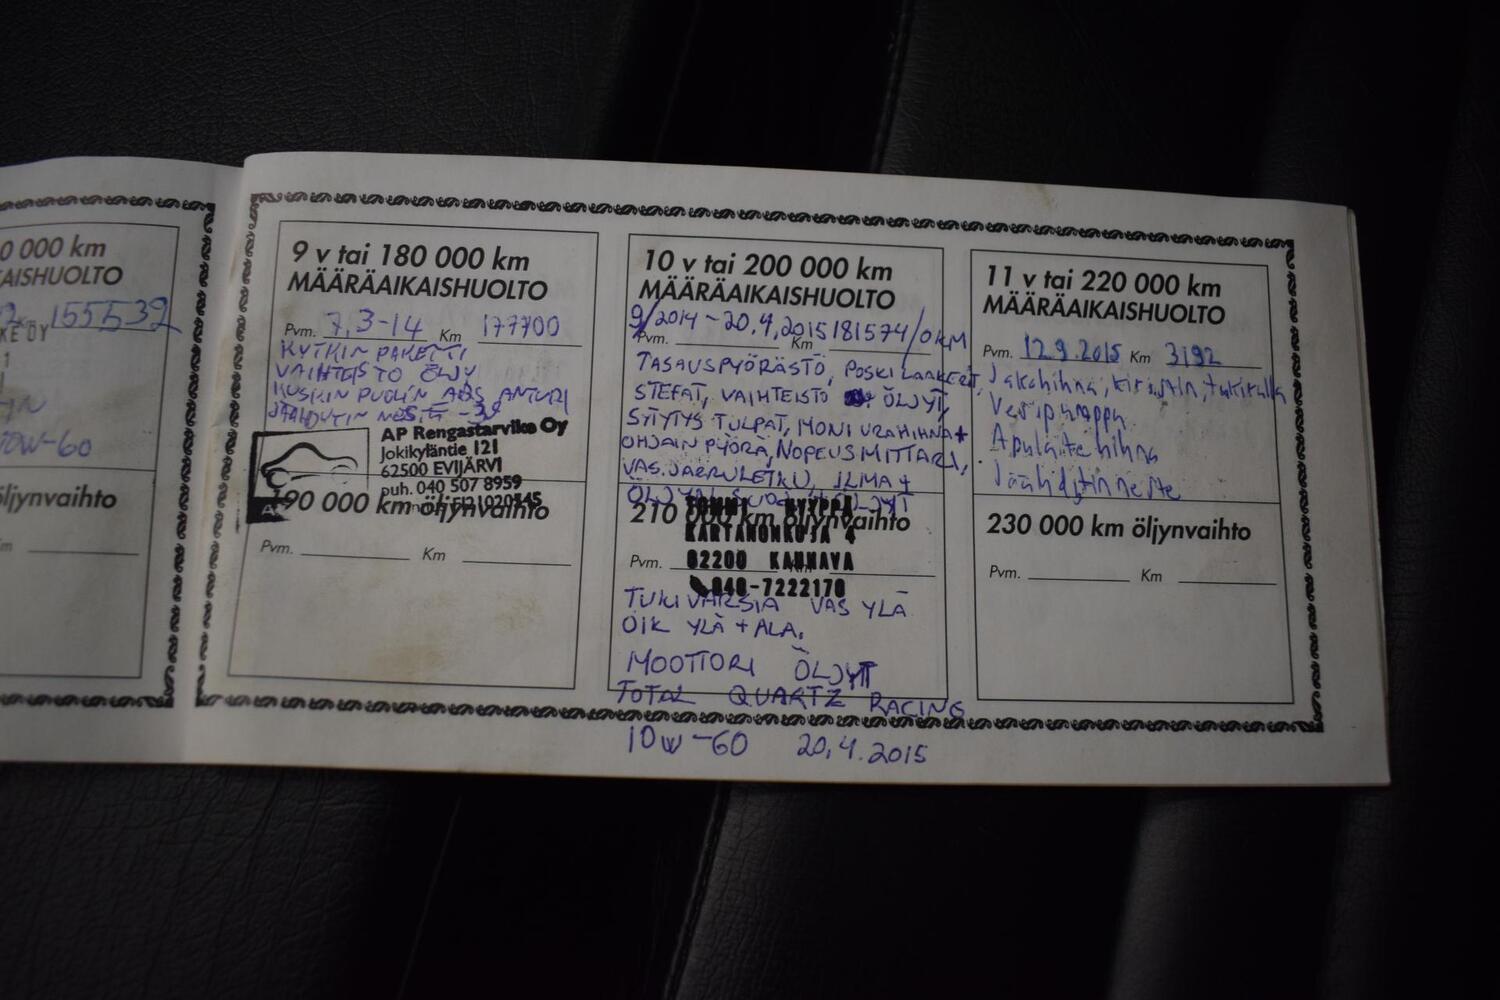 0 000 km
AISHUOLTO
155532
KE OY
10W-60
öljynvaihto
Km
9 v tai 180 000 km
MÄÄRÄAIKAISHUOLTO
Pvm. 7.3-14 Km 177700
KYTKIN PAKETTI
VAIHTEISTO ÖLJY
KUSKIN PUOL'N ABS ANTURI
JÄÄHDYTIN NESTE -38
AP Rengastarvike Oy
Jokikyläntie 121
62500 EVIJÄRVI
puh. 040 507 8959
FI21020545
190 000 km öljynvaihto
Pvm. Km
10 v tai 200 000 km
MÄÄRÄAIKAISHUOLTO
9/2014-20.4.2015 181574/0KM
Pvm. Km
TASAUSPYÖRÄSTÖ, POSKI LAAKERIT,
STEFAT, VAIHTEISTO ÖLJYT,
SYTYTYS TULPAT, MONIURAHIHNA+
OHJAIN PYÖRÄ, NOPEUSMITTARI,
VAS. JARRULETKU, ILMA +
ÖLJYN SUOD. ÖLJYT
210 000 km öljynvaihto
TOMMI KYYPPÄ
KARTANONKUJA 4
Pvm. 62200 KAUHAVA
040-7222170
TUKIVARSIA VAS YLÄ
OIK YLÄ + ALA.
MOOTTORI ÖLJYT
TOTAL QUARTZ RACING
10W-60 20.4.2015
11 v tai 220 000 km
MÄÄRÄAIKAISHUOLTO
Pvm. 12.9.2015 Km 3192
Jakohihna, kiristin, tukirulla
Vesipumppu
Apulaitehihna
Jäähdytinneste
230 000 km öljynvaihto
Pvm. Km